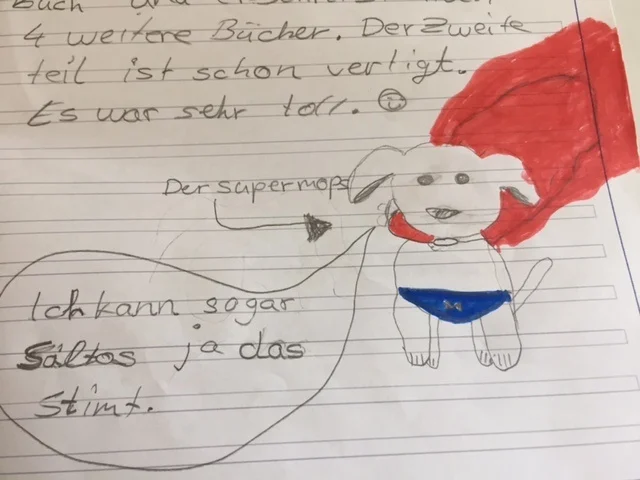 Buch und
4 weitere Bücher. Der zweite
teil ist schon vertigt.
Es war sehr toll.
Der supermops
Ich kann sogar
Saltos ja das
Stimt.
M